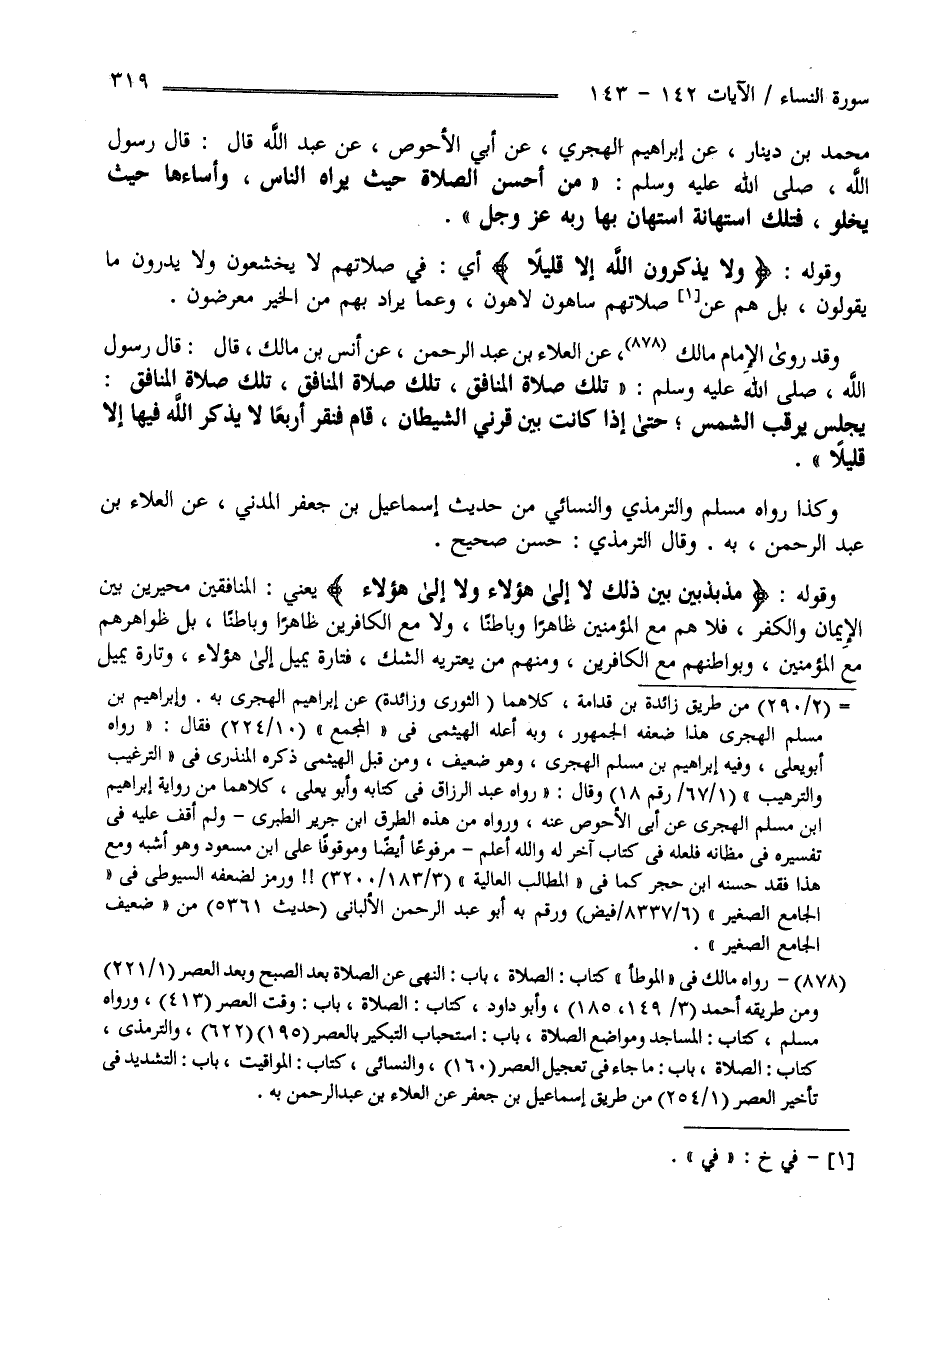 سورة النساء / الآيات ١٤٢ – ١٤٣
٣١٩
محمد بن دينار ، عن إبراهيم الهجري ، عن أبي الأحوص ، عن عبد اللَّه قال : قال رسول
اللَّه ، صلى اللَّه عليه وسلم : « من أحسن الصلاة حيث يراه الناس ، وأساءها حيث
يخلو ، فتلك استهانة استهان بها ربه عز وجل » .
وقوله : ﴿ ولا يذكرون اللَّه إلا قليلًا ﴾ أي : في صلاتهم لا يخشعون ولا يدرون ما
يقولون ، بل هم عن[١] صلاتهم ساهون لاهون ، وعما يراد بهم من الخير معرضون .
وقد روىٰ الإمام مالك (٨٧٨)، عن العلاء بن عبد الرحمن ، عن أنس بن مالك ، قال : قال رسول
اللَّه ، صلى اللَّه عليه وسلم : « تلك صلاة المنافق ، تلك صلاة المنافق ، تلك صلاة المنافق :
يجلس يرقب الشمس ؛ حتىٰ إذا كانت بين قرني الشيطان ، قام فنقر أربعًا لا يذكر اللَّه فيها إلا
قليلًا » .
وكذا رواه مسلم والترمذي والنسائي من حديث إسماعيل بن جعفر المدني ، عن العلاء بن
عبد الرحمن ، به . وقال الترمذي : حسن صحيح .
وقوله : ﴿ مذبذبين بين ذلك لا إلىٰ هؤلاء ولا إلىٰ هؤلاء ﴾ يعني : المنافقين محيرين بين
الإيمان والكفر ، فلا هم مع المؤمنين ظاهرًا وباطنًا ، ولا مع الكافرين ظاهرًا وباطنًا ، بل ظواهرهم
مع المؤمنين ، وبواطنهم مع الكافرين ، ومنهم من يعتريه الشك ، فتارة يميل إلىٰ هؤلاء ، وتارة يميل
= (٢٩٠/٢) من طريق زائدة بن قدامة ، كلاهما ( الثورى وزائدة) عن إبراهيم الهجرى به . وإبراهيم بن
مسلم الهجرى هذا ضعفه الجمهور ، وبه أعله الهيثمى فى « المجمع » (٢٢٤/١٠) فقال : « رواه
أبويعلى ، وفيه إبراهيم بن مسلم الهجرى ، وهو ضعيف ، ومن قبل الهيثمى ذكره المنذرى فى « الترغيب
والترهيب » (٦٧/١/ رقم ١٨) وقال : « رواه عبد الرزاق فى كتابه وأبو يعلى ، كلاهما من رواية إبراهيم
ابن مسلم الهجرى عن أبى الأحوص عنه ، ورواه من هذه الطرق ابن جرير الطبرى – ولم أقف عليه فى
تفسيره فى مظانه فلعله فى كتاب آخر له والله أعلم – مرفوعًا أيضًا وموقوفًا على ابن مسعود وهو أشبه ومع
هذا فقد حسنه ابن حجر كما فى « المطالب العالية » (٣٢٠٠/١٨٣/٣) !! ورمز لضعفه السيوطى فى «
الجامع الصغير » (٨٣٣٧/٦/فيض) ورقم به أبو عبد الرحمن الألبانى (حديث ٥٣٦١) من « ضعيف
الجامع الصغير » .
(٨٧٨) – رواه مالك فى « الموطأ » كتاب : الصلاة ، باب : النهى عن الصلاة بعد الصبح وبعد العصر (٢٢١/١)
ومن طريقه أحمد (٣/ ١٤٩، ١٨٥) ، وأبو داود ، كتاب : الصلاة ، باب : وقت العصر (٤١٣) ، ورواه
مسلم ، كتاب : المساجد ومواضع الصلاة ، باب : استحباب التبكير بالعصر (١٩٥) (٦٢٢) ، والترمذى ،
كتاب : الصلاة ، باب : ما جاء فى تعجيل العصر (١٦٠) ، والنسائى ، كتاب : المواقيت ، باب : التشديد فى
تأخير العصر (٢٥٤/١) من طريق إسماعيل بن جعفر عن العلاء بن عبدالرحمن به .
[١] – في خ : « في » .